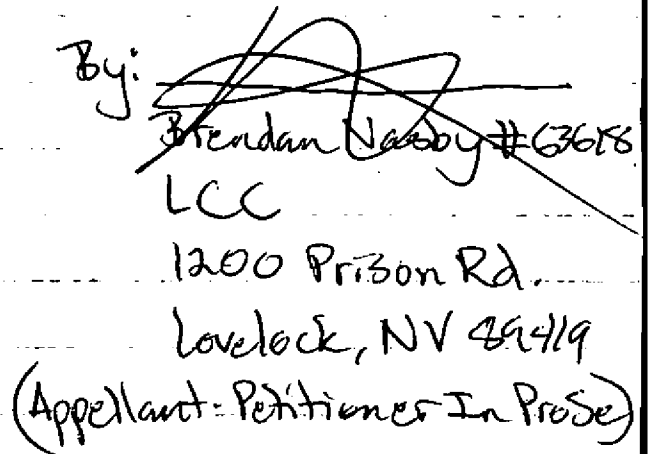 By:
Brendan Nasby #63618
LCC
1200 Prison Rd.
Lovelock, NV 89419
(Appellant-Petitioner In ProSe)